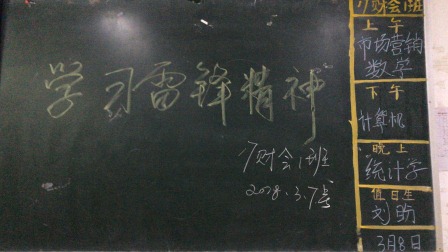 学习雷锋精神
17财会1班
2018.3.7号
17财会1班
上午
市场营销
数学
下午
计算机
晚上
统计学
值日生
3月8日